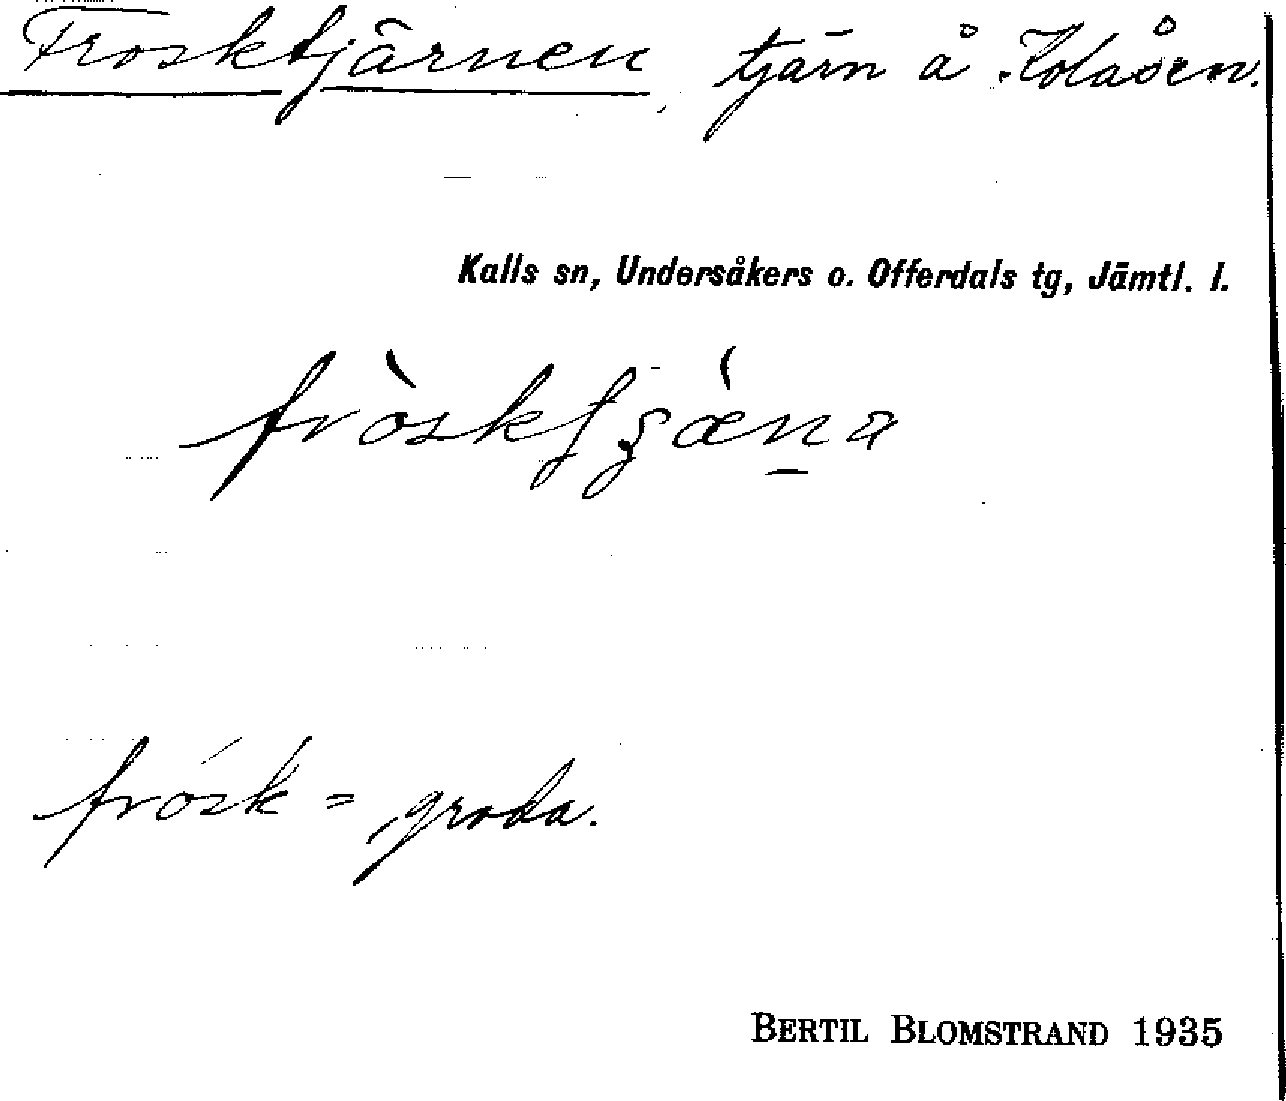 Frosktjärnen, tjärn å Kolåsen.
Kalls sn, Undersåkers o. Offerdals tg, Jämtl. l.
frosk = groda.
BERTIL BLOMSTRAND 1935